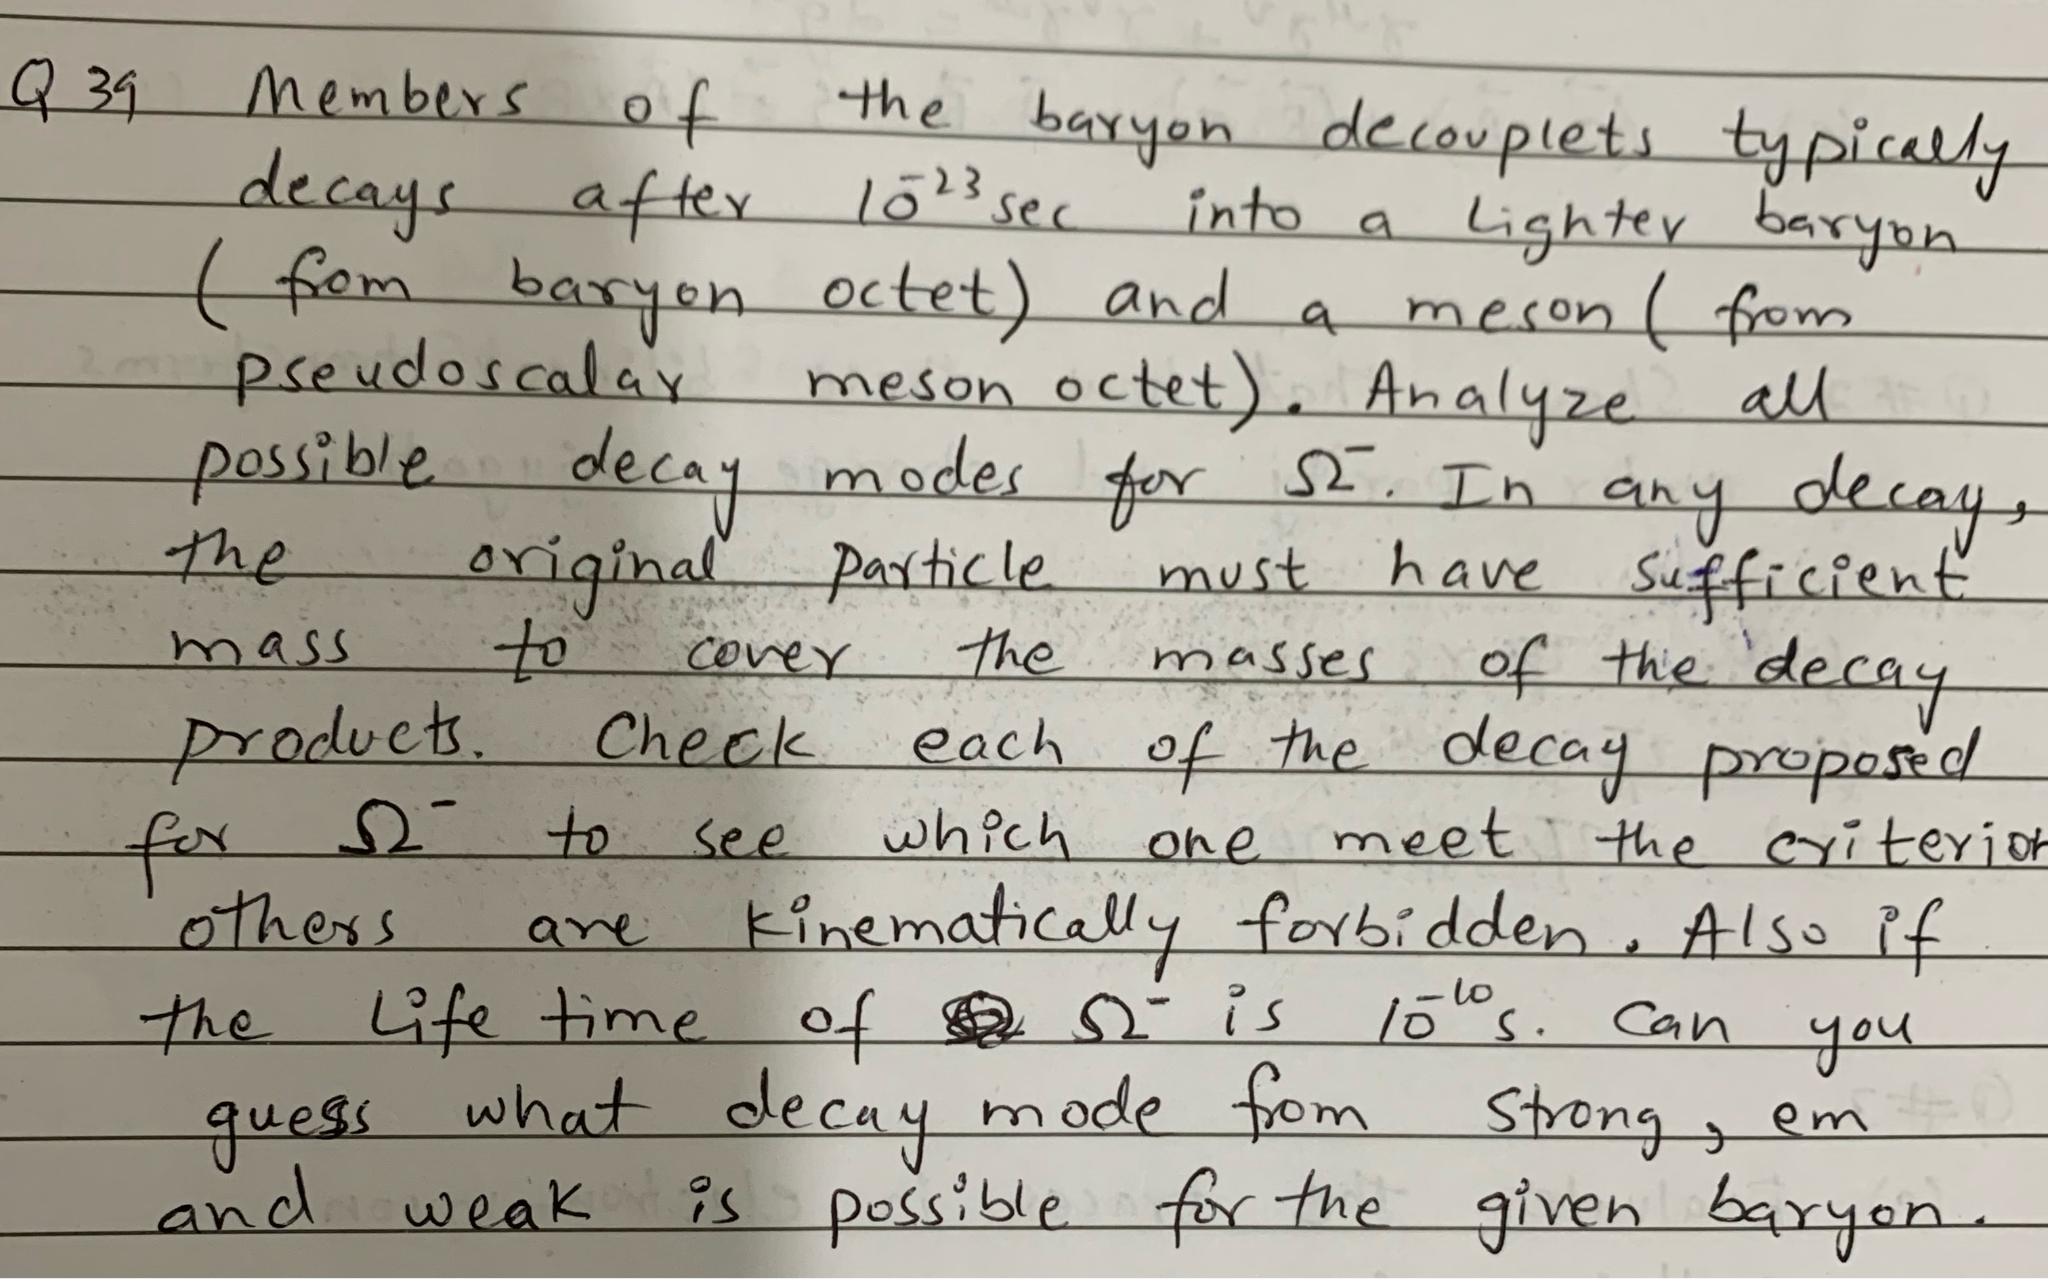 Q 39 Members of the baryon decouplets typically
decays after 10⁻²³ sec into a Lighter baryon
( from baryon octet) and a meson ( from
pseudoscalar meson octet). Analyze all
possible decay modes for Ω⁻. In any decay,
the original particle must have sufficient
mass to cover the masses of the decay
products. Check each of the decay proposed
for Ω⁻ to see which one meet the criterion
others are kinematically forbidden. Also if
the Life time of Ω⁻ is 10⁻¹⁰ s. Can you
guess what decay mode from strong, em
and weak is possible for the given baryon.